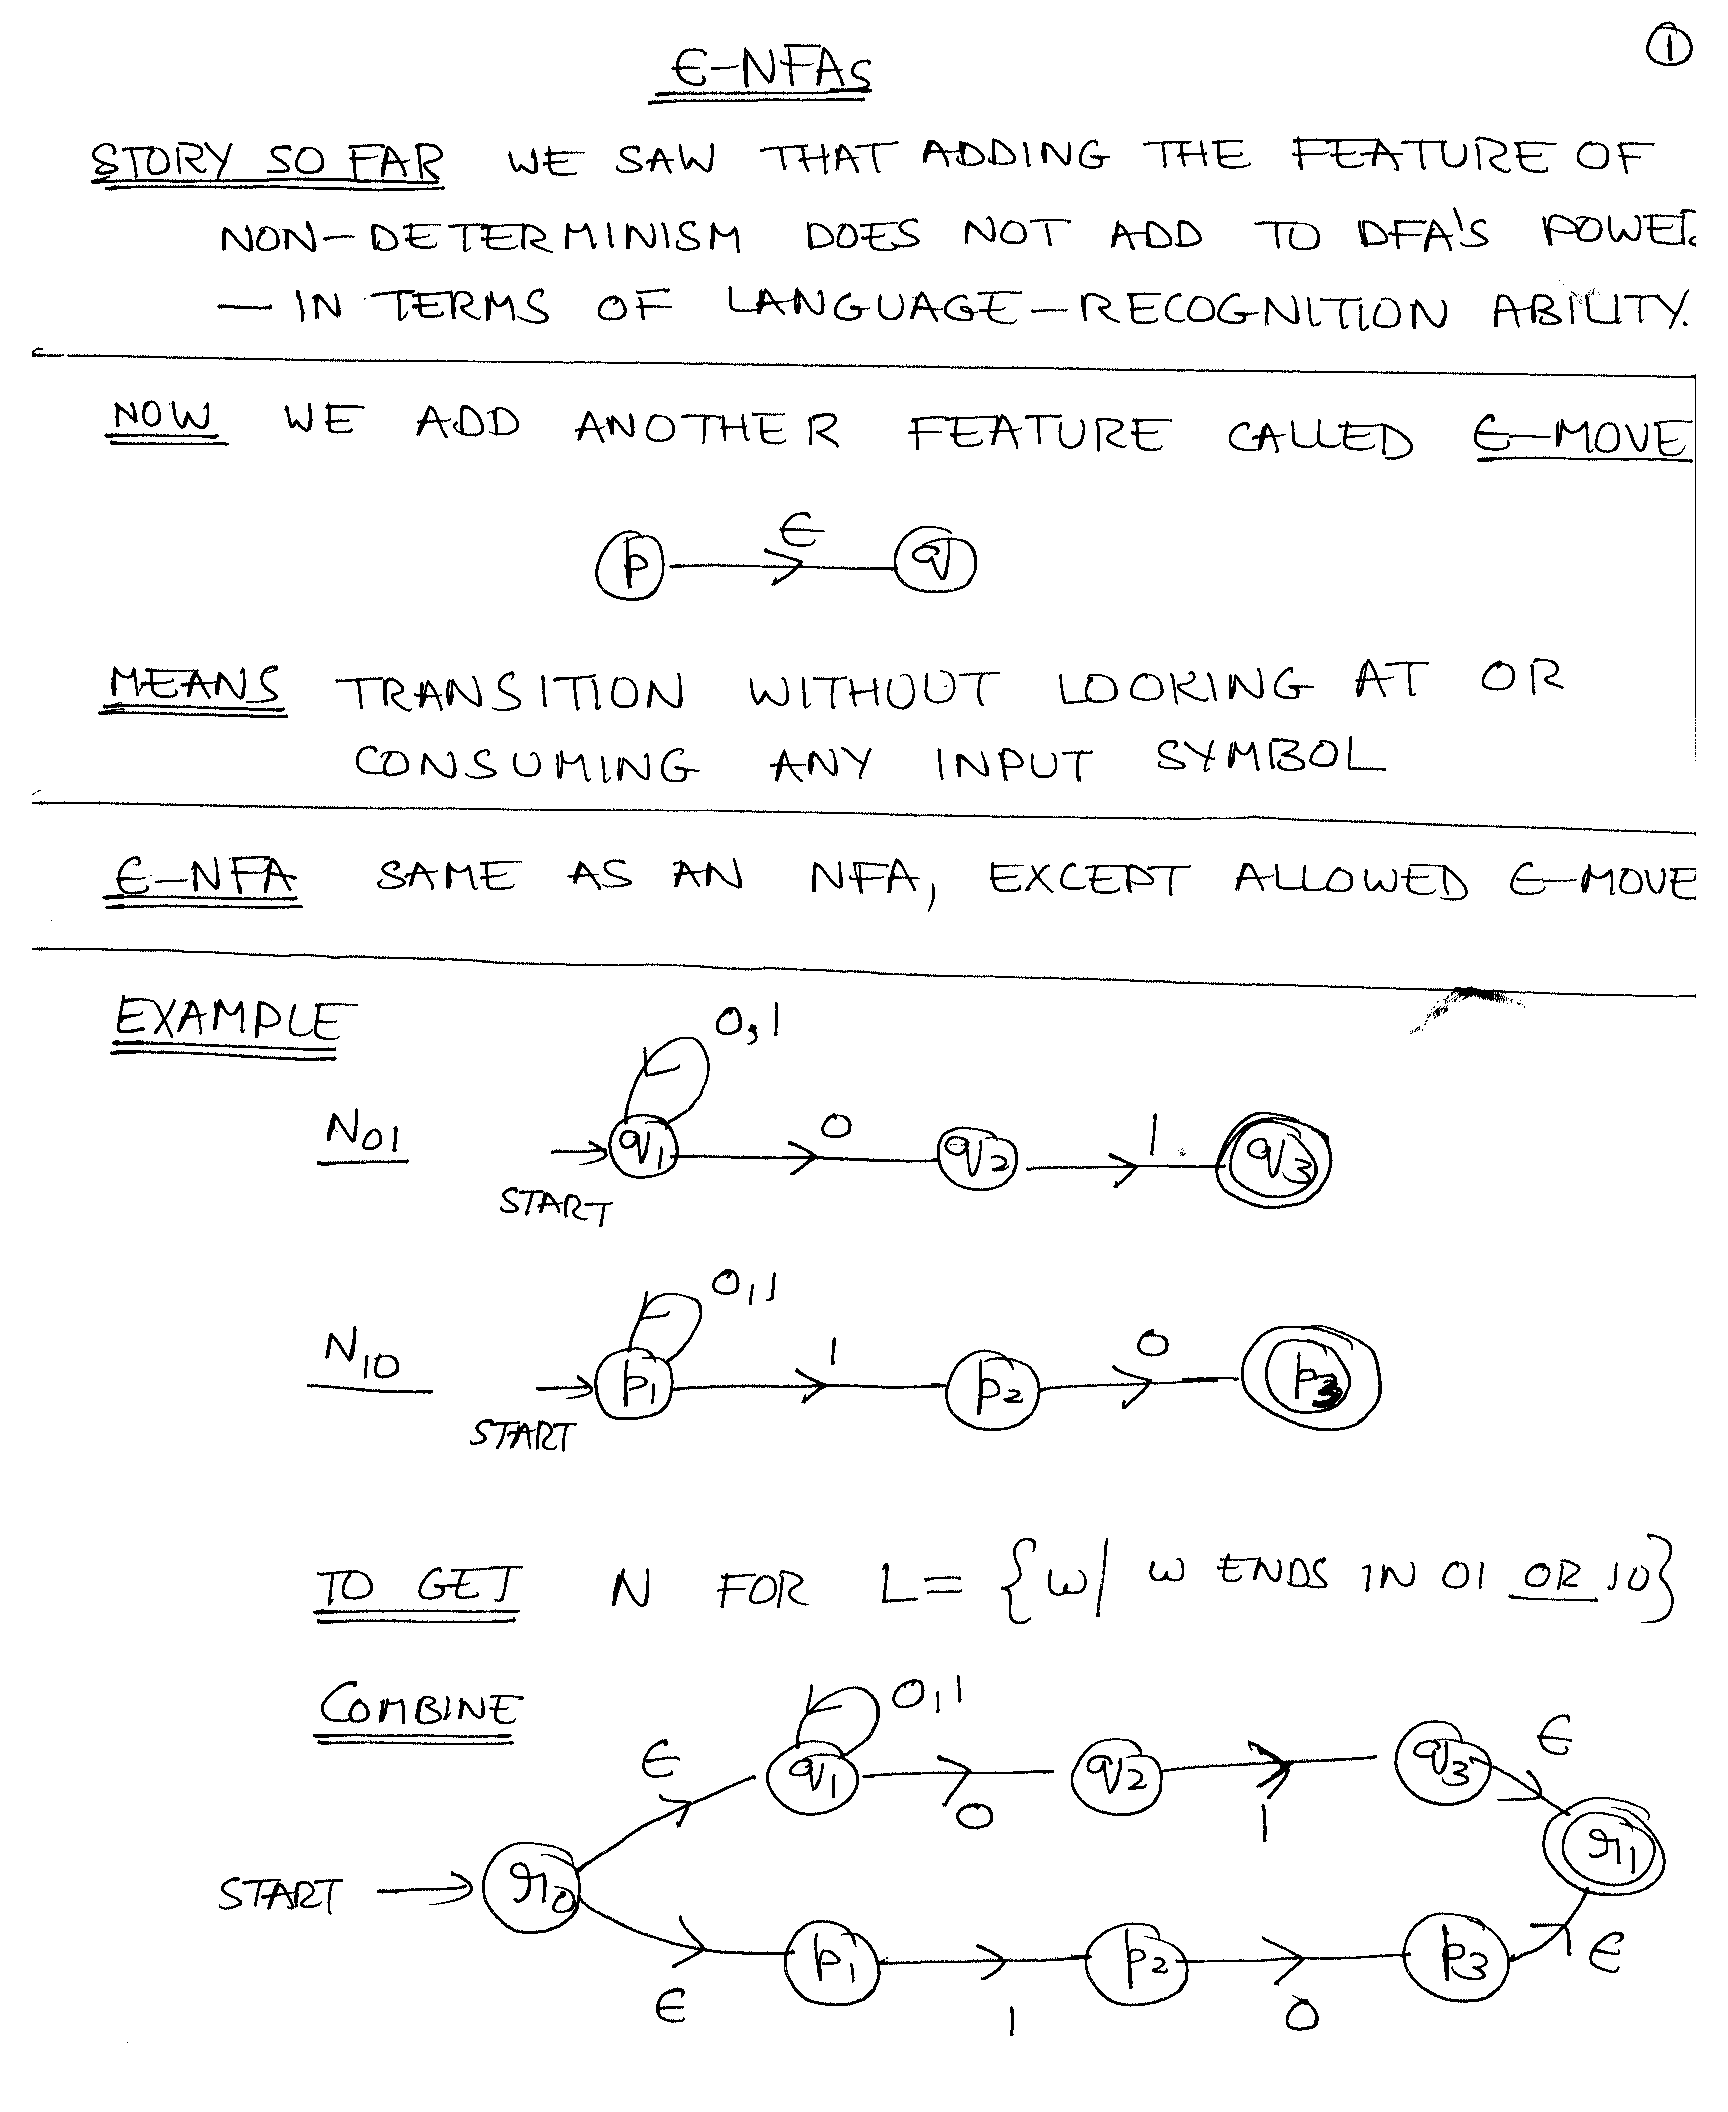 ①
ε-NFAs
STORY SO FAR WE SAW THAT ADDING THE FEATURE OF
NON-DETERMINISM DOES NOT ADD TO DFA'S POWER
— IN TERMS OF LANGUAGE-RECOGNITION ABILITY.
NOW WE ADD ANOTHER FEATURE CALLED ε-MOVE
ε
p q
MEANS TRANSITION WITHOUT LOOKING AT OR
CONSUMING ANY INPUT SYMBOL
ε-NFA SAME AS AN NFA, EXCEPT ALLOWED ε-MOVE
EXAMPLE
0,1
N01 q1 0 q2 1 q3
START
0,1
N10 p1 1 p2 0 p3
START
TO GET N FOR L= {w/ w ENDS IN 01 OR 10}
COMBINE
0,1
ε q1 0 q2 1 q3 ε
START r0 r1
ε p1 1 p2 0 p3 ε